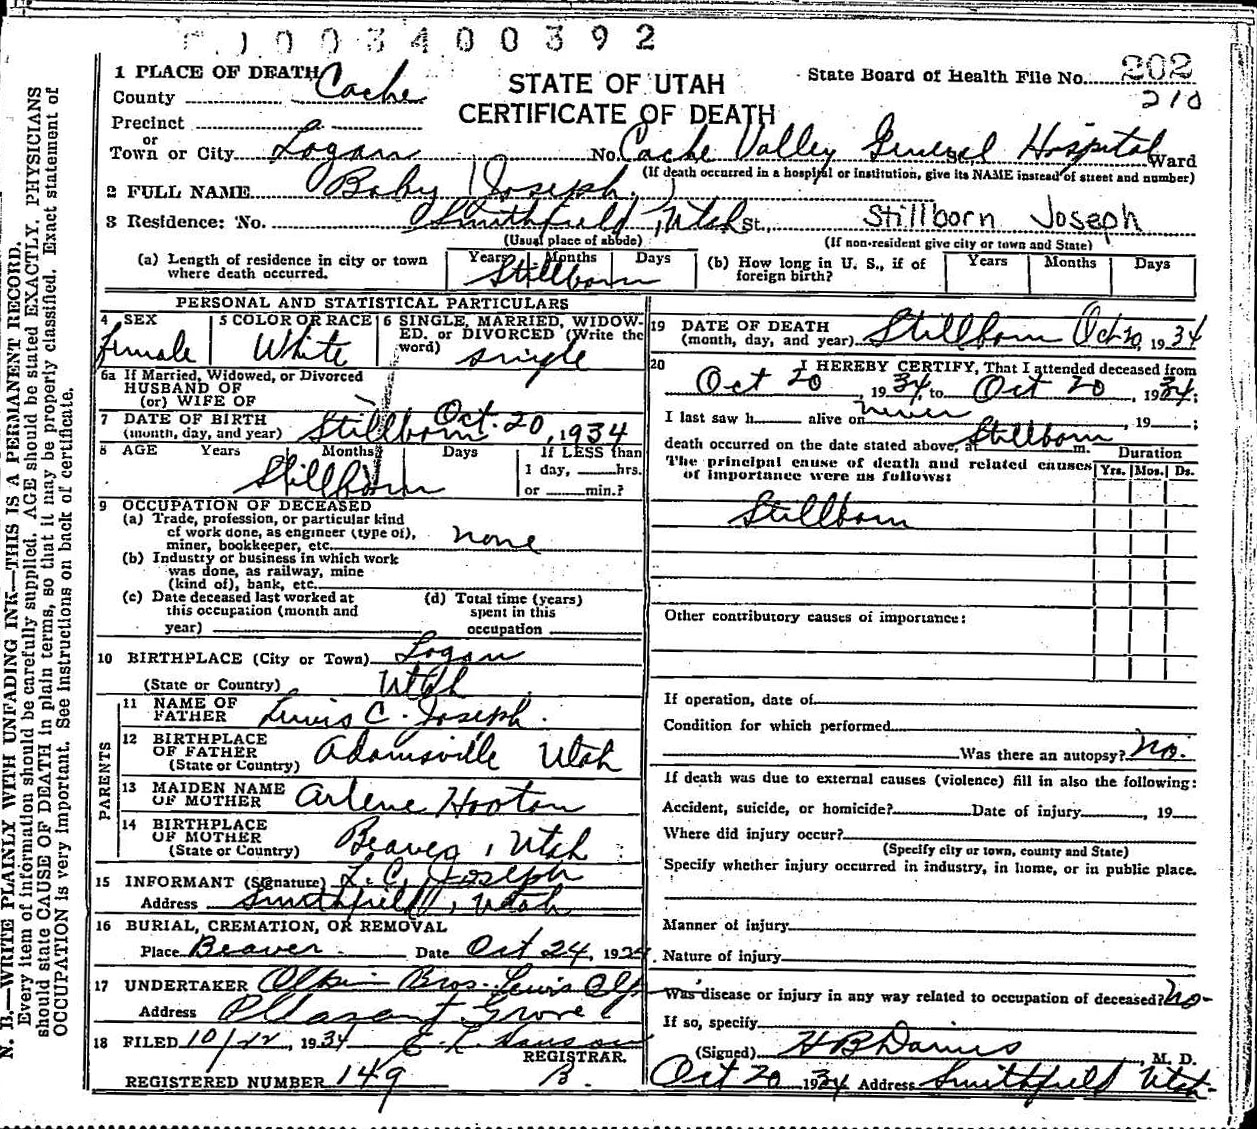 0 0 3 4 0 0 3 9 2
1 PLACE OF DEATH
County Cache
STATE OF UTAH
CERTIFICATE OF DEATH
State Board of Health File No. 202
210
Precinct
or
Town or City Logan No. Cache Valley General Hospital St., Ward
(If death occurred in a hospital or institution, give its NAME instead of street and number)
2 FULL NAME Baby Joseph.
3 Residence: No. Smithfield, Utah St., Stillborn Joseph
(Usual place of abode) (If non-resident give city or town and State)
(a) Length of residence in city or town where death occurred. Years Months Days Stillborn
(b) How long in U. S., if of foreign birth? Years Months Days
PERSONAL AND STATISTICAL PARTICULARS
4 SEX female
5 COLOR OR RACE White
6 SINGLE, MARRIED, WIDOWED, or DIVORCED (Write the word) single
6a If Married, Widowed, or Divorced
HUSBAND OF
(or) WIFE OF
7 DATE OF BIRTH
(month, day, and year) Stillborn Oct. 20, 1934
8 AGE Years Months Days If LESS than
1 day, hrs.
or min.?
Stillborn
9 OCCUPATION OF DECEASED
(a) Trade, profession, or particular kind
of work done, as engineer (type of),
miner, bookkeeper, etc. none
(b) Industry or business in which work
was done, as railway, mine
(kind of), bank, etc.
(c) Date deceased last worked at
this occupation (month and
year)
(d) Total time (years)
spent in this
occupation
10 BIRTHPLACE (City or Town) Logan
(State or Country) Utah
PARENTS
11 NAME OF
FATHER Lewis C. Joseph.
12 BIRTHPLACE
OF FATHER
(State or Country) Adamsville Utah
13 MAIDEN NAME
OF MOTHER Arlene Hooton
14 BIRTHPLACE
OF MOTHER
(State or Country) Beaver, Utah
15 INFORMANT (Signature) L. C. Joseph
Address Smithfield, Utah
16 BURIAL, CREMATION, OR REMOVAL
Place Beaver Date Oct 24, 1934
17 UNDERTAKER Bros.
Address Pleasant Grove
18 FILED 10/22, 1934
REGISTRAR.
REGISTERED NUMBER 149 B.
19 DATE OF DEATH
(month, day, and year) Stillborn Oct 20, 1934
20 I HEREBY CERTIFY, That I attended deceased from
Oct 20, 1934, to Oct 20, 1934;
I last saw h alive on never, 19 ;
death occurred on the date stated above, at Stillborn m.
The principal cause of death and related causes
of importance were as follows:
Duration
Yrs. Mos. Ds.
Stillborn
Other contributory causes of importance:
If operation, date of
Condition for which performed
Was there an autopsy? No.
If death was due to external causes (violence) fill in also the following:
Accident, suicide, or homicide? Date of injury , 19
Where did injury occur?
(Specify city or town, county and State)
Specify whether injury occurred in industry, in home, or in public place.
Manner of injury
Nature of injury
Was disease or injury in any way related to occupation of deceased? No-
If so, specify
(Signed) H B , M. D.
Oct 20 1934 Address Smithfield Utah.
N. B.—WRITE PLAINLY WITH UNFADING INK—THIS IS A PERMANENT RECORD.
Every item of information should be carefully supplied. AGE should be stated EXACTLY. PHYSICIANS
should state CAUSE OF DEATH in plain terms, so that it may be properly classified. Exact statement of
OCCUPATION is very important. See instructions on back of certificate.